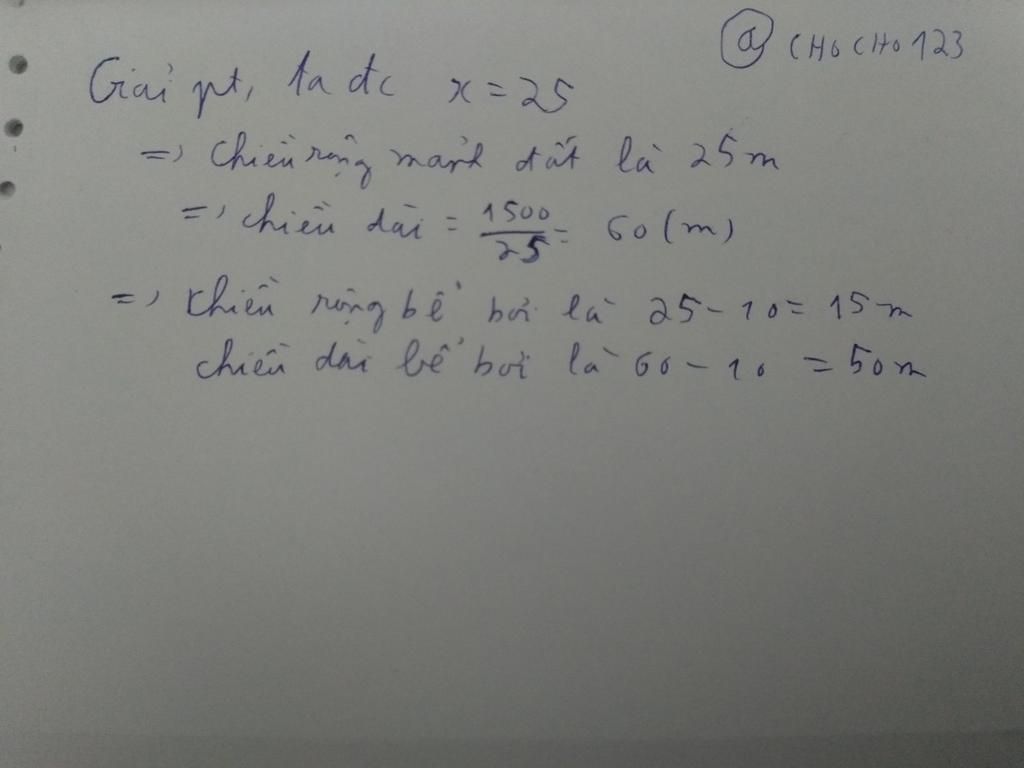 @ CHO CHO 123
Giải pt, ta đc x = 25
=> chiều rộng mảnh đất là 25m
=> chiều dài = 1500/25 = 60 (m)
=> chiều rộng bể bơi là 25 - 10 = 15m
chiều dài bể bơi là 60 - 10 = 50m